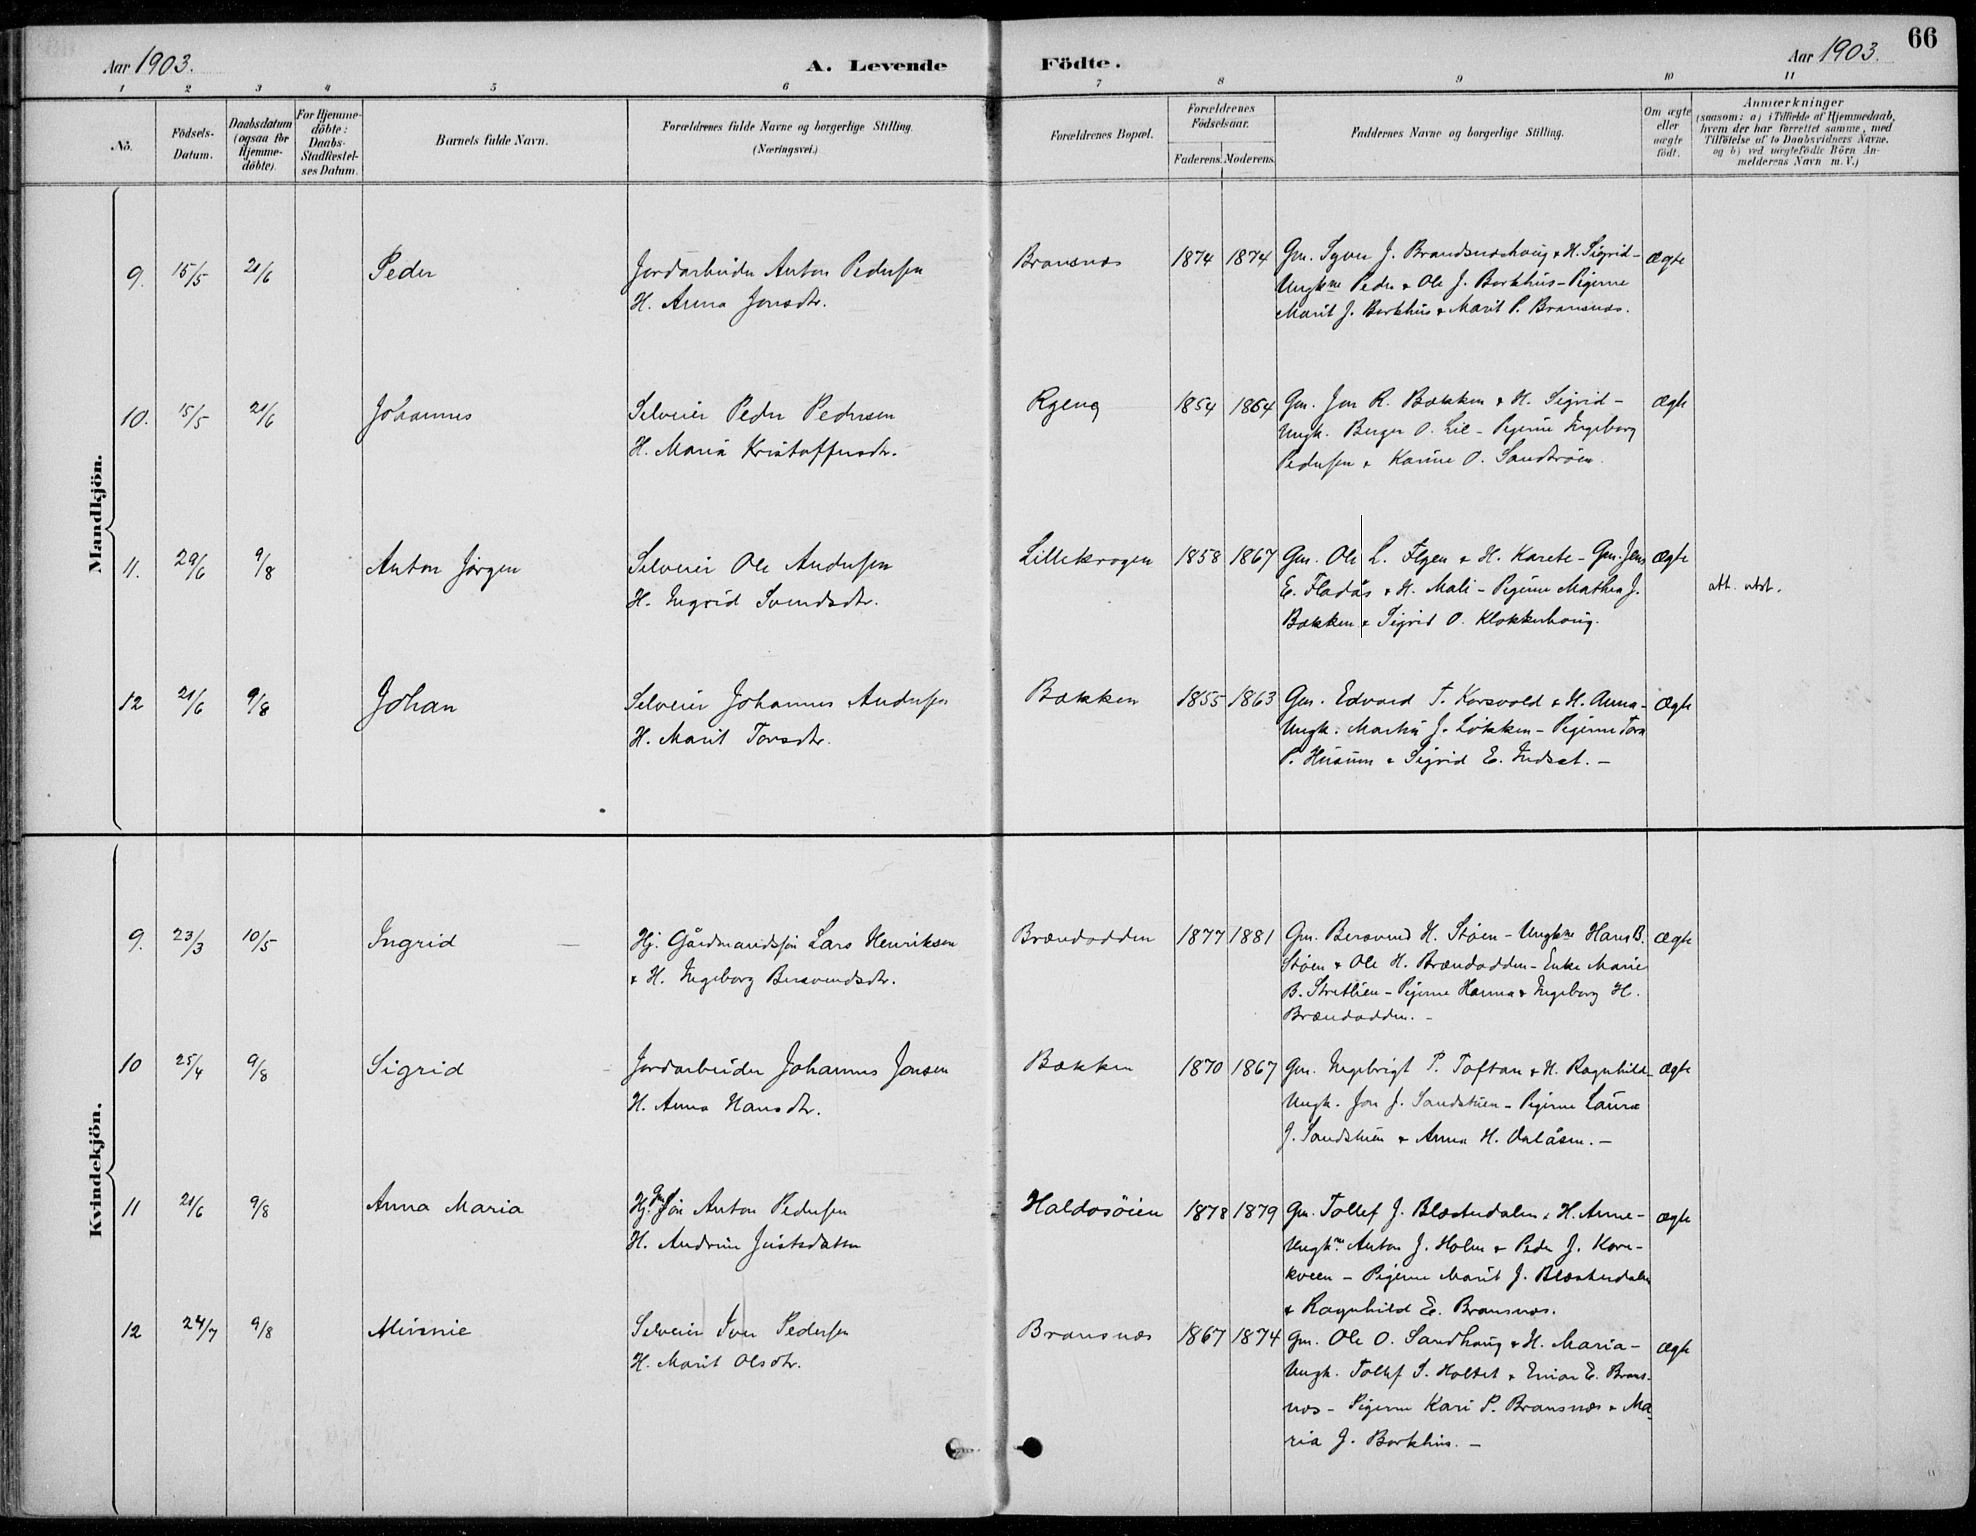 66
Aar 1903.
A. Levende Födte.
Aar 1903.
1 2 3 4 5 6 7 8 9 10 11
No.
Födsels-Datum.
Daabsdatum (ogsaa for Hjemme-döbte).
For Hjemme-döbte: Daabs-Stadfæstel-ses Datum.
Barnets fulde Navn.
Forældrenes fulde Navne og borgerlige Stilling.
(Næringsvei.)
Forældrenes Bopæl.
Forældrenes Födselsaar.
Faderens. Moderens.
Faddernes Navne og borgerlige Stilling.
Om ægte eller uægte födt.
Anmærkninger
(saasom: a) i Tilfælde af Hjemmedaab,
hvem der har forrettet samme, med
Tilföielse af to Daabsvidners Navne.
og b) ved uægtefödte Börn An-
melderens Navn m. V.)
Mandkjön.
9. 15/5 21/6 Peder
Jordarbeider Anton Pedersen
H. Anna Jonsdtr.
Bransnæs 1874 1874
Gm. Syver J. Brandsnæshaug & H. Sigrid -
Ungkne Peder & Ole J. Barkhus - Pigerne
Marit J. Barkhus & Marit P. Bransnæs.
Ægte
10. 15/5 21/6 Johannes
Selveier Peder Pedersen
H. Maria Kristoffersdtr.
Rgeng 1854 1864
Gm. Jon R. Bakken & H. Sigrid -
Ungk. Berger O. Lie - Pigerne Ingeborg
Pedersen & Karine O. Sandtrøen.
Ægte
11. 29/6 9/8 Anton Jörgen
Selveier Ole Andersen
H. Ingrid Svendsdtr.
Lillekrogen 1858 1867
Gm. Ole L. Flgen & H. Karete - Gm. Jens
E. Fladås & H. Mali - Pigerne Mathea J.
Bakken & Sigrid O. Klokkerhaug.
Ægte
att. utst.
12 21/6 9/8 Johan
Selveier Johannes Andersen
H. Marit Torsdtr.
Bakken 1855 1863
Gm. Edvard T. Korsvold & H. Anna -
Ungk. Martin J. Løkken - Pigerne Tora
P. Husum & Sigrid E. Indset. -
Ægte
Kvindekjön.
9. 23/3 10/5 Ingrid
Hj. Gårdmandssøn Lars Henriksen
& H. Ingeborg Bersvendsdtr.
Brændodden 1877 1881
Gm. Bersvend H. Støen - Ungkne Hans B.
Støen & Ole H. Brændodden - Enke Marie
B. Stretlien - Pigerne Hanna & Ingeborg H.
Brændodden. -
Ægte
10 25/4 9/8 Sigrid
Jordarbeider Johannes Jonsen
H. Anna Hansdtr.
Bakken 1870 1867
Gm. Ingebrigt P. Toftan & H. Ragnhild -
Ungk. Jon J. Sandstuen - Pigerne Laura
J. Sandstuen & Anna H. Oalåsen. -
Ægte
11 21/6 9/8 Anna Maria
Hj. Gm Søn Anton Pedersen
H. Andrine Justsdatter
Haldosöien 1878 1879
Gm. Tollef J. Blæsterdalen & H. Anne -
Ungkne Anton J. Holm & Peder J. Kore-
kveen - Pigerne Marit J. Blæsterdalen
& Ragnhild E. Bransnæs.
Ægte
12 24/7 9/8 Minnie
Selveier Iver Pedersen
H. Marit Olsdtr.
Bransnæs 1867 1874
Gm. Ole O. Sandhaug & H. Maria -
Ungk. Tollef S. Holtet & Einar E. Brans-
næs - Pigerne Kari P. Bransnæs & Ma-
ria J. Barkhus. -
Ægte